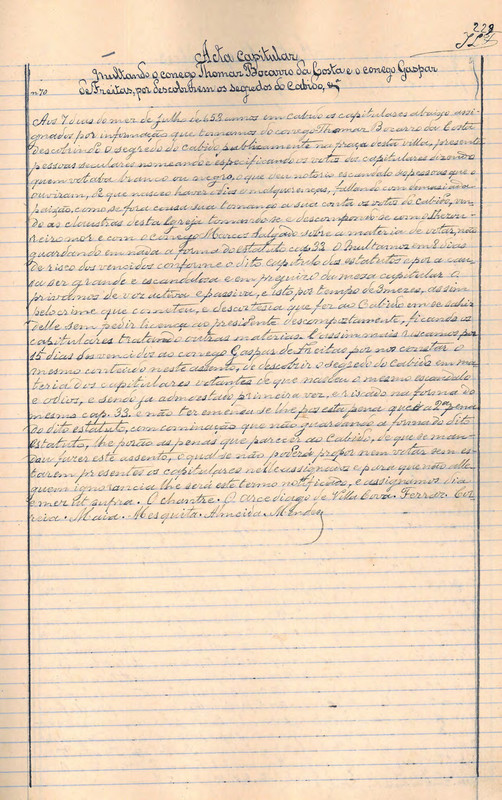 228
Acta Capitular
Multando o conego Thomaz Bocarro da Costa e o conego Gaspar
nº70
de Freitas, por descobrirem os segredos do Cabido, &ª
Aos 7 dias do mez de Julho de 653 annos em cabido os capitulares abaixo assi-
gnados por informação que tomamos do conego Thomaz Bocarro da Costa
descobrindo o segredo do cabido publicamente na praça desta villa, presente
pessoas seculares nomeando e especificando os votos dos capitulares dizendo
quem votava branco ou negro, o que deu notorio escandalo ás pessoas que o
ouviram, de que nasceo haver odios e malquerenças, fallando com demasiada
paixão, como se fora cousa sua tomando a sua conta os votos do cabido, vin-
do ás claustras desta Igreja tomando-se e descompondo-se com o thezou-
reiro mor e com o conego Marcos Salgado sobre a materia de votar, não
guardando em nada a forma do estatuto cap. 33. O multamos em 8 dias
de risco dos vencidos conforme o dito capitulo dos estatutos e por a cau-
sa ser grande e escandilosa e em prejuizo da mesa capitular o
privamos de voz activa e passiva, e isto por tempo de 3 mezes, assim
pelo crime que cometeu, e descortesia que fez ao Cabido em se sahir
delle sem pedir licença ao presidente descompostamente, ficando os
capitulares tratando outras materias. E assim mais riscamos por
15 dias dos vencidos ao conego Gaspar de Freitas por nos constar o
mesmo conteúdo neste assento, de descobrir o segredo do Cabido em ma-
teria dos capitulares votantes de que nasceu o mesmo escandalo
e odios, e sendo já admoestado primeira vez, e riscado na forma do
mesmo cap. 33. e não ter emenda se lhe poz esta pena que é a 2ª pena
do dito estatuto, com cominação que não guardando a forma do dito
estatuto, lhe porão as penas que parecer ao Cabido, de que se man-
dou fazer este assento, o qual se não poderá propor nem votar sem es-
tarem presentes os capitulares nelle assignados e para que não alle-
guem ignorancia lhe será este termo notificado, e assignamos dia
e mez ut supra. O chantre. O Arcediago de Villa Cova. Ferraz.
Maia. Mesquita. Almeida. Mendes